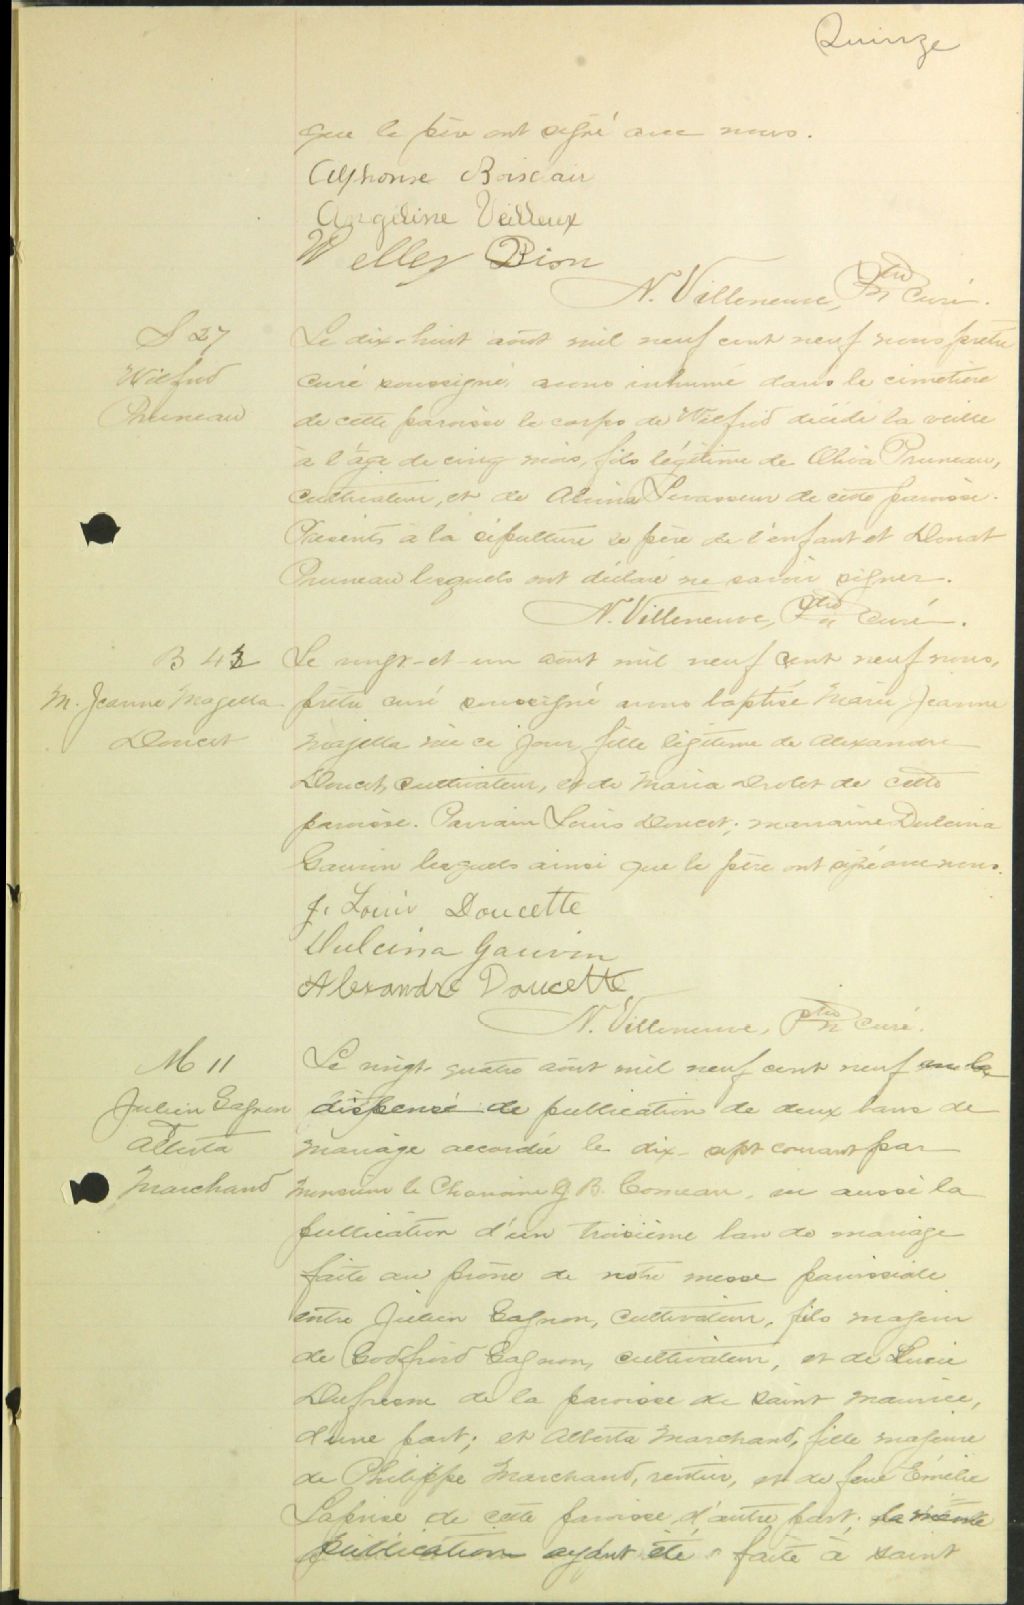 Quinze
que le père ont signé avec nous.
Alphonse Boisclair
Angéline Veilleux
Welley Dion
N. Villeneuve, Ptre Curé.
S 27
Wilfrid
Pruneau
Le dix-huit août mil neuf cent neuf nous prêtre
curé soussigné avons inhumé dans le cimetière
de cette paroisse le corps de Wilfrid décédé la veille
à l'âge de cinq mois, fils légitime de Oliva Pruneau,
cultivateur, et de Alvina Levasseur de cette paroisse.
Présents à la sépulture le père de l'enfant et Donat
Pruneau lesquels ont déclaré ne savoir signer.
N. Villeneuve, Ptre Curé.
B 42
M. Jeanne Magella
Doucet
Le vingt-et-un août mil neuf cent neuf nous,
prêtre curé soussigné avons baptisé Marie Jeanne
Magella née ce jour fille légitime de Alexandre
Doucet, cultivateur, et de Maria Drolet de cette
paroisse. Parrain Louis Doucet; marraine Dulcina
Gauvin lesquels ainsi que le père ont signé avec nous.
J. Louis Doucette
Dulcina Gauvin
Alexandre Doucette
N. Villeneuve, Ptre curé.
M 11
Julien Gagnon
et
Alberta
Marchand
Le vingt-quatre août mil neuf cent neuf vu la
dispense de publication de deux bans de
mariage accordée le dix-sept courant par
Monsieur le Chanoine G B. Comeau, vu aussi la
publication d'un troisième ban de mariage
faite au prône de notre messe paroissiale
entre Julien Gagnon, cultivateur, fils majeur
de Godfroid Gagnon, cultivateur, et de Lucie
Dufresne de la paroisse de Saint Maurice,
d'une part; et Alberta Marchand, fille majeure
de Philippe Marchand, rentier, et de feue Emélie
Laprise de cette paroisse d'autre part; la même
publication ayant été faite à Saint